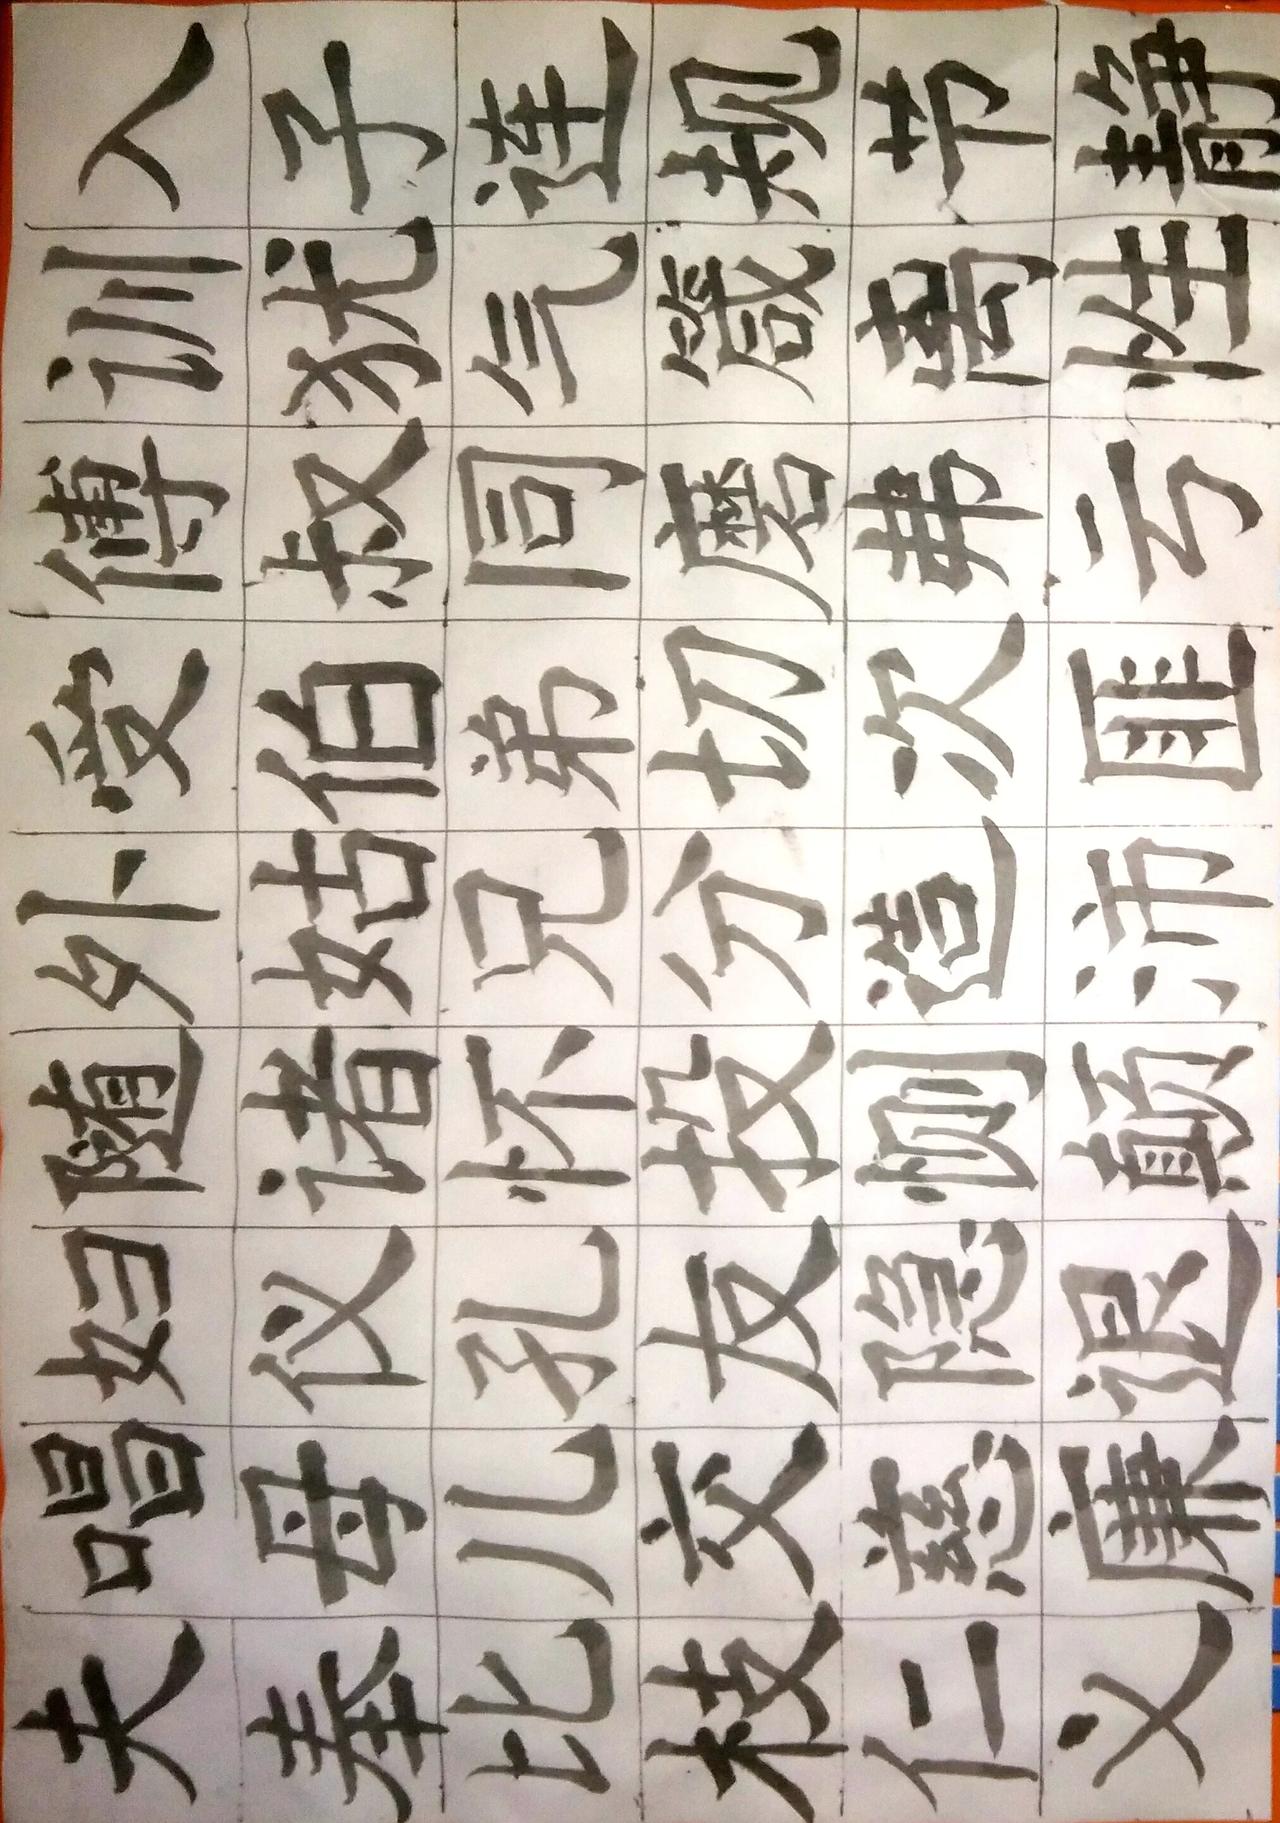 夫唱妇随外受傅训入
奉母仪诸姑伯叔犹子
比儿孔怀兄弟同气连
枝交友投分切磨箴规
仁慈隐恻造次弗离节
义廉退颠沛匪亏性静